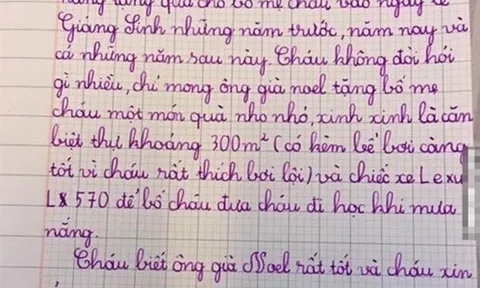 tặng quà cho bố mẹ cháu vào ngày lễ
Giáng Sinh những năm trước, năm nay và
cả những năm sau này. Cháu không đòi hỏi
gì nhiều, chỉ mong ông già noel tặng bố mẹ
cháu một món quà nho nhỏ, xinh xinh là căn
biệt thự khoảng 300m² (có kèm bể bơi càng
tốt vì cháu rất thích bơi lội) và chiếc xe Lexu
LX 570 để bố cháu đưa cháu đi học khi mưa
nắng.
Cháu biết ông già Noel rất tốt và cháu xin